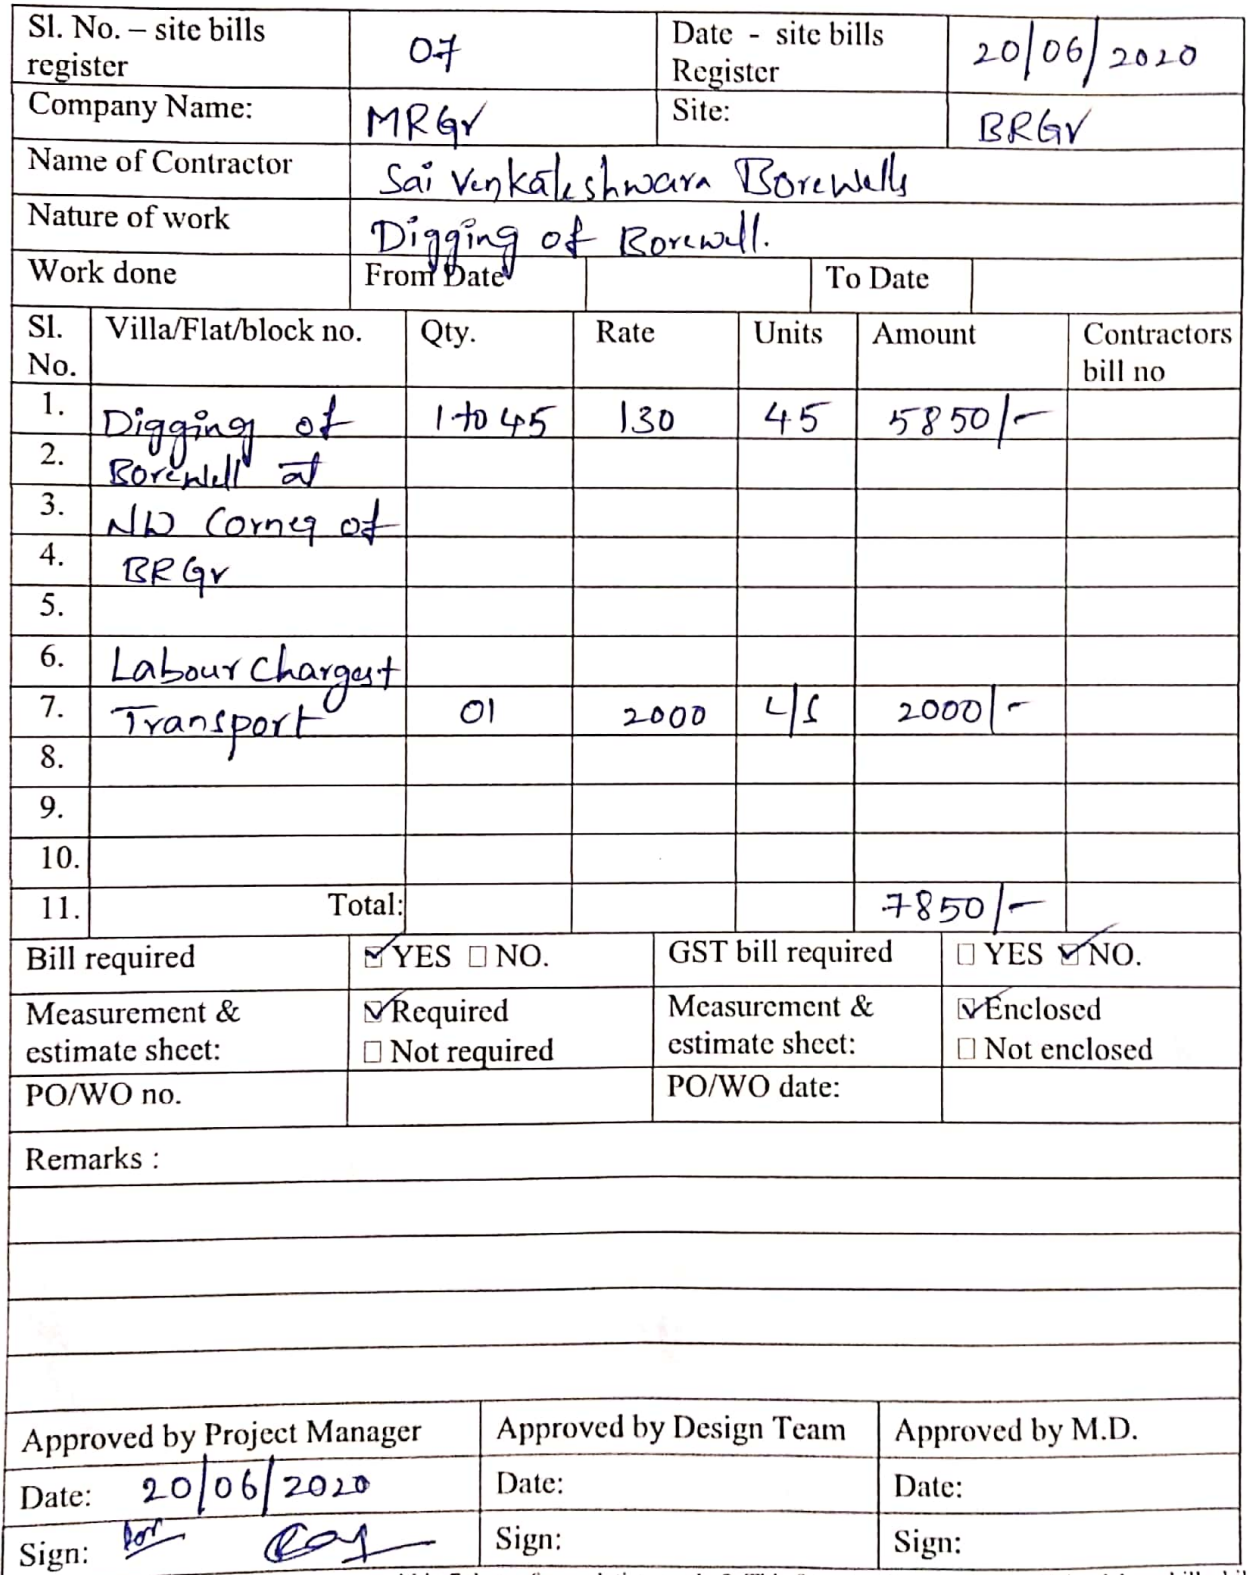 Sl. No. – site bills register 07 Date - site bills Register 20/06/2020
Company Name: MRGV Site: BRGV
Name of Contractor Sai Venkateshwara Borewells
Nature of work Digging of Borewell.
Work done From Date To Date
Sl. No. Villa/Flat/block no. Qty. Rate Units Amount Contractors bill no
1. Digging of 1 to 45 130 45 5850/-
2. Borewell at
3. NW Corner of
4. BRGV
5.
6. Labour Charges +
7. Transport 01 2000 L/S 2000/-
8.
9.
10.
11. Total: 7850/-
Bill required ☑ YES ☐ NO. GST bill required ☐ YES ☑ NO.
Measurement & estimate sheet: ☑ Required ☐ Not required Measurement & estimate sheet: ☑ Enclosed ☐ Not enclosed
PO/WO no. PO/WO date:
Remarks :
Approved by Project Manager Approved by Design Team Approved by M.D.
Date: 20/06/2020 Date: Date:
Sign: Sign: Sign: